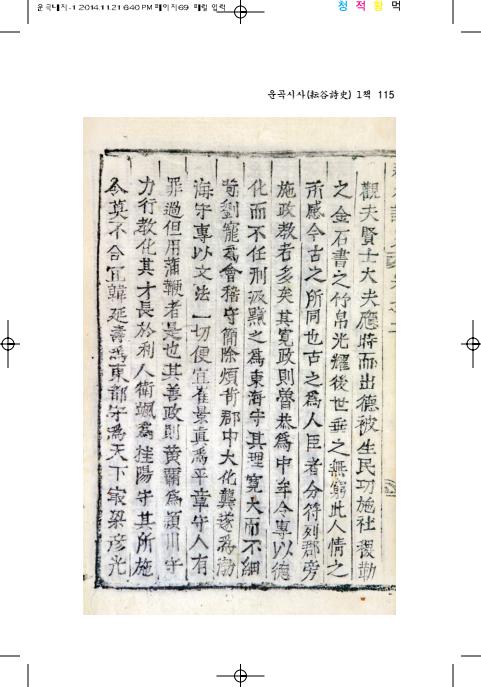 운곡내지-1 2014.11.21 6:40 PM 페이지69 매월 입력
청 적 황 먹
운곡시사(耘谷詩史) 1책 115
觀夫賢士大夫應時而出德被生民功施社稷勒
之金石書之竹帛光耀後世垂之無窮此人情之
所感今古之所同也古之爲人臣者分符列郡旁
施政教者多矣其寬政則魯恭爲中牟令專以德
化而不任刑汲黯之爲東海守其理寬大而不細
苛劉寵爲會稽守簡除煩苛郡中大化龔遂爲渤
海守專以文法一切便宜崔景真爲平章守人有
罪過但用蒲鞭者是也其善政則黃霸爲潁川守
力行教化其才長於利人衛颯爲桂陽守其所施
令莫不合宜韓延壽爲東都守爲天下最梁彦光